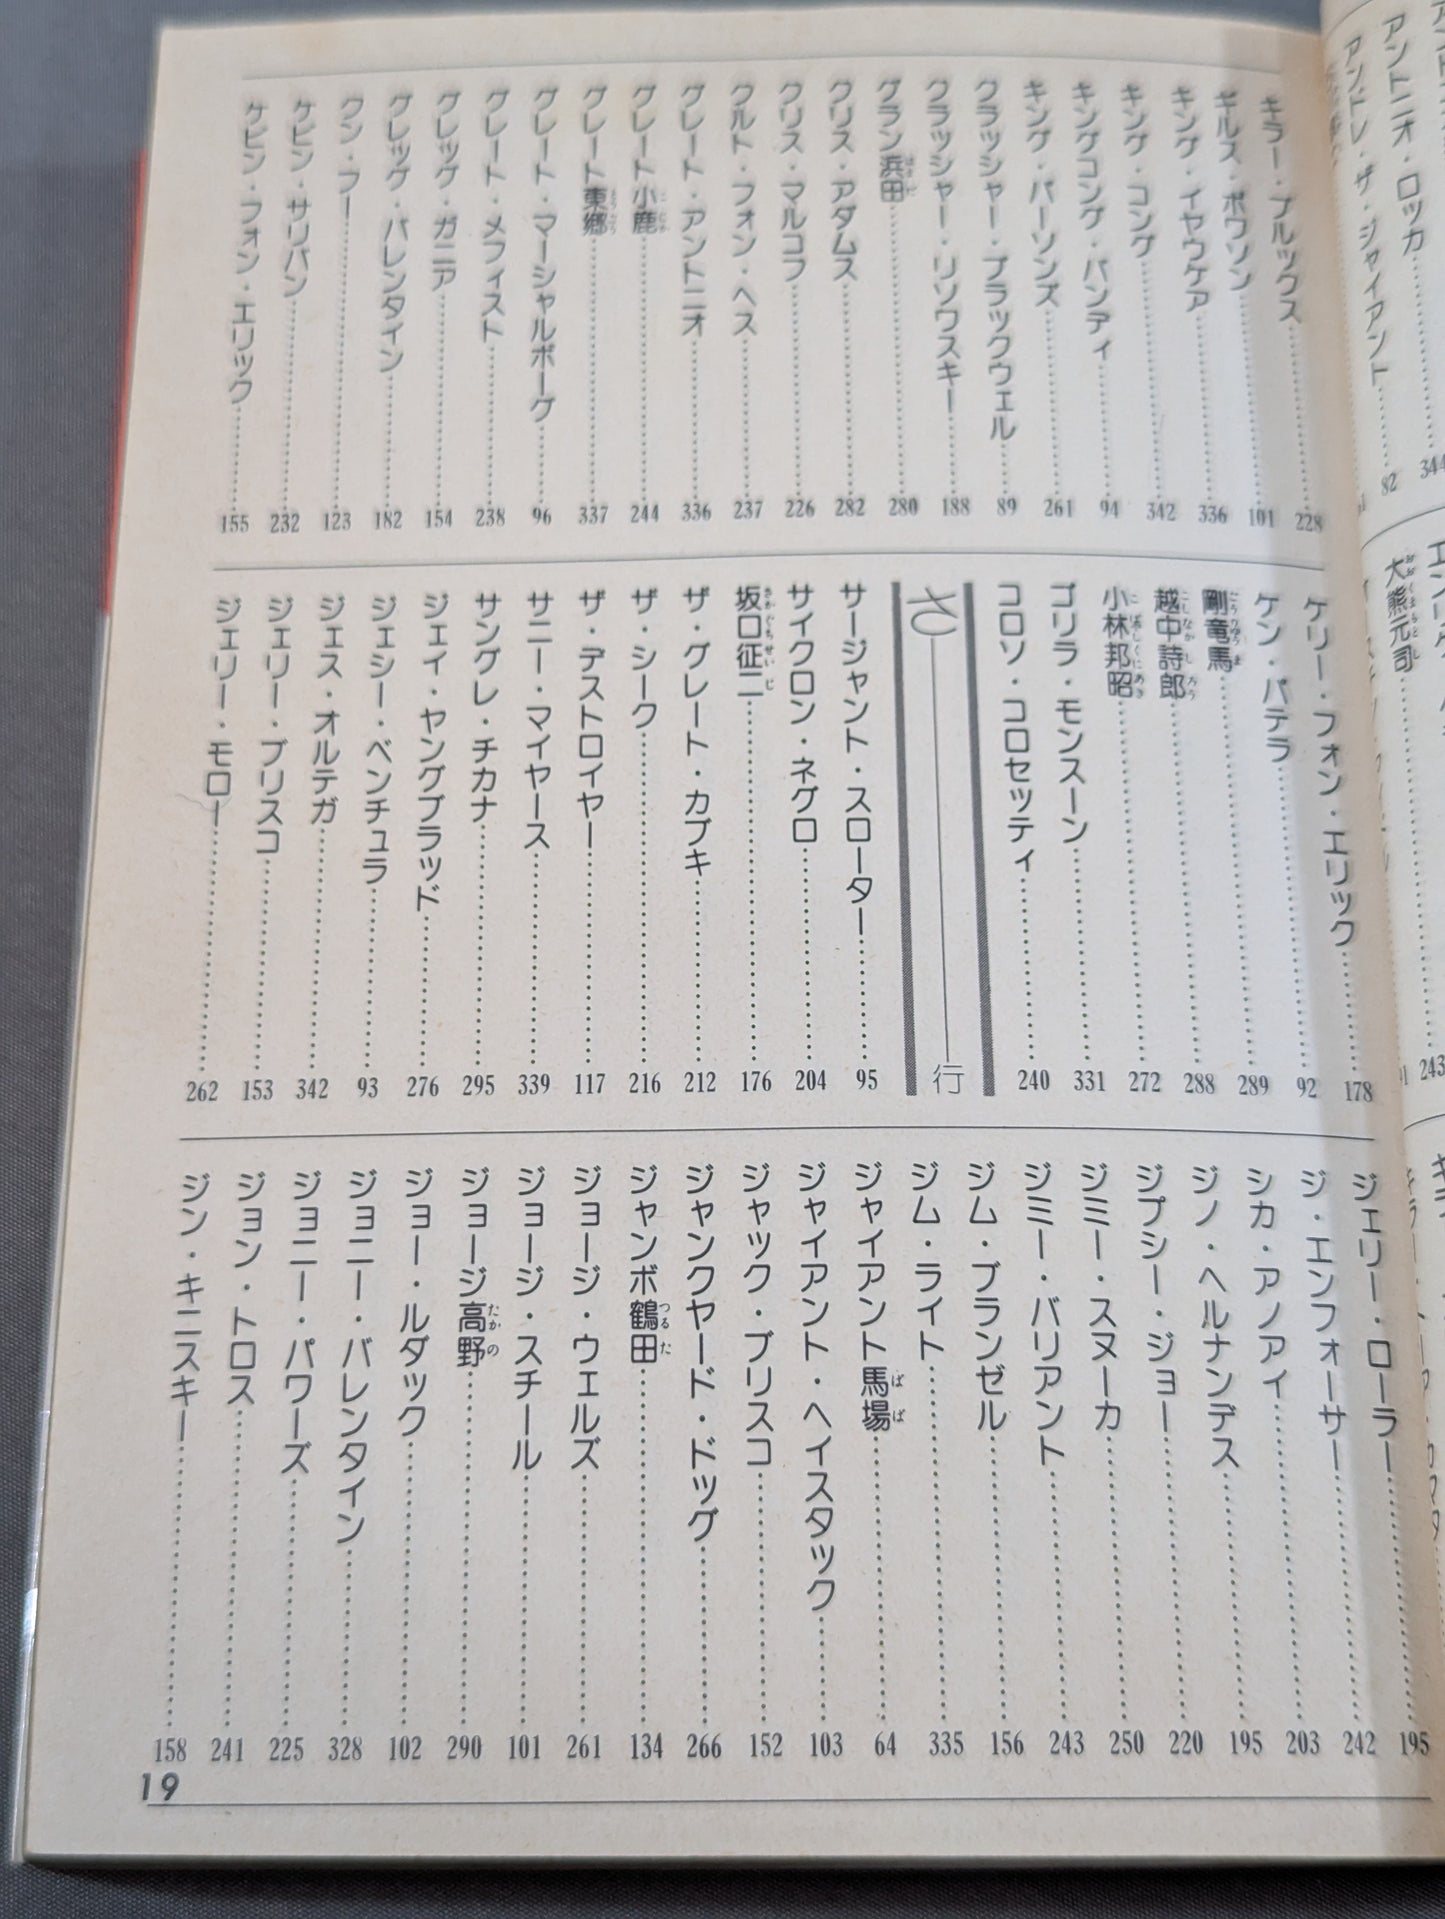 キラー・ブルックス 228
ギルス・ボワソン 101
キング・イヤウケア 336
キング・コング 342
キングコング・バンディ 94
キング・パーソンズ 261
クラッシャー・ブラックウェル 89
クラッシャー・リソワスキー 188
グラン浜田 280
クリス・アダムス 282
クリス・マルコフ 226
クルト・フォン・ヘス 237
グレート・アントニオ 336
グレート小鹿 244
グレート東郷 337
グレート・マーシャルボーグ 96
グレート・メフィスト 238
グレッグ・ガニア 154
グレッグ・バレンタイン 182
クン・フー 123
ケビン・サリバン 232
ケビン・フォン・エリック 155
ケリー・フォン・エリック 178
ケン・パテラ 92
剛竜馬 289
越中詩郎 288
小林邦昭 272
ゴリラ・モンスーン 331
コロソ・コロセッティ 240
さ行
サージャント・スローター 95
サイクロン・ネグロ 204
坂口征二 176
ザ・グレート・カブキ 212
ザ・シーク 216
ザ・デストロイヤー 117
サニー・マイヤース 339
サングレ・チカナ 295
ジェイ・ヤングブラッド 276
ジェシー・ベンチュラ 93
ジェス・オルテガ 342
ジェリー・ブリスコ 153
ジェリー・モロー 262
ジェリー・ローラー 195
ジ・エンフォーサー 242
シカ・アノアイ 203
ジノ・ヘルナンデス 195
ジプシー・ジョー 220
ジミー・スヌーカ 250
ジミー・バリアント 243
ジム・ブランゼル 156
ジム・ライト 335
ジャイアント馬場 64
ジャイアント・ヘイスタック 103
ジャック・ブリスコ 152
ジャンクヤード・ドッグ 266
ジャンボ鶴田 134
ジョージ・ウェルズ 261
ジョージ・スチール 101
ジョージ高野 290
ジョー・ルダック 102
ジョニー・バレンタイン 328
ジョニー・パワーズ 225
ジョン・トロス 241
ジン・キニスキー 158
19
アントニオ・ロッカ 344
アンドレ・ザ・ジャイアント 82
大熊元司
243